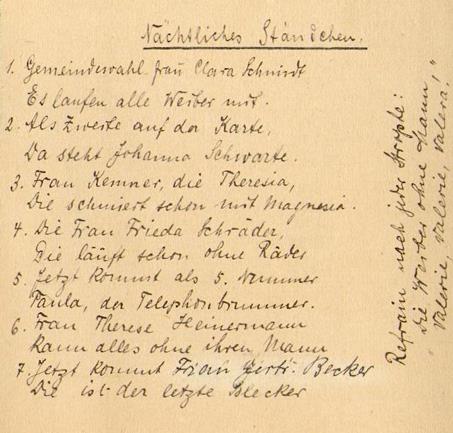 Nächtliches Ständchen.
1. Gemeindewahl Frau Clara Schmidt
Es laufen alle Weiber mit.
2. Als zweite auf der Karte,
Da steht Johanna Schwarte.
3. Frau Kemner, die Theresia,
Die schmiert schon mit Magnesia.
4. Die Frau Frieda Schräder,
Die läuft schon ohne Räder
5. Jetzt kommt als 5. Nummer
Paula, der Telephonbrummer.
6. Frau Therese Heinermann
Kann alles ohne ihren Mann
7. Jetzt kommt Frau Gertr. Becker
Die ist der letzte Blecker
Refrain nach jeder Strophe:
Die Weiber ohne Mann,
Valerie, Valerie, Valera!"